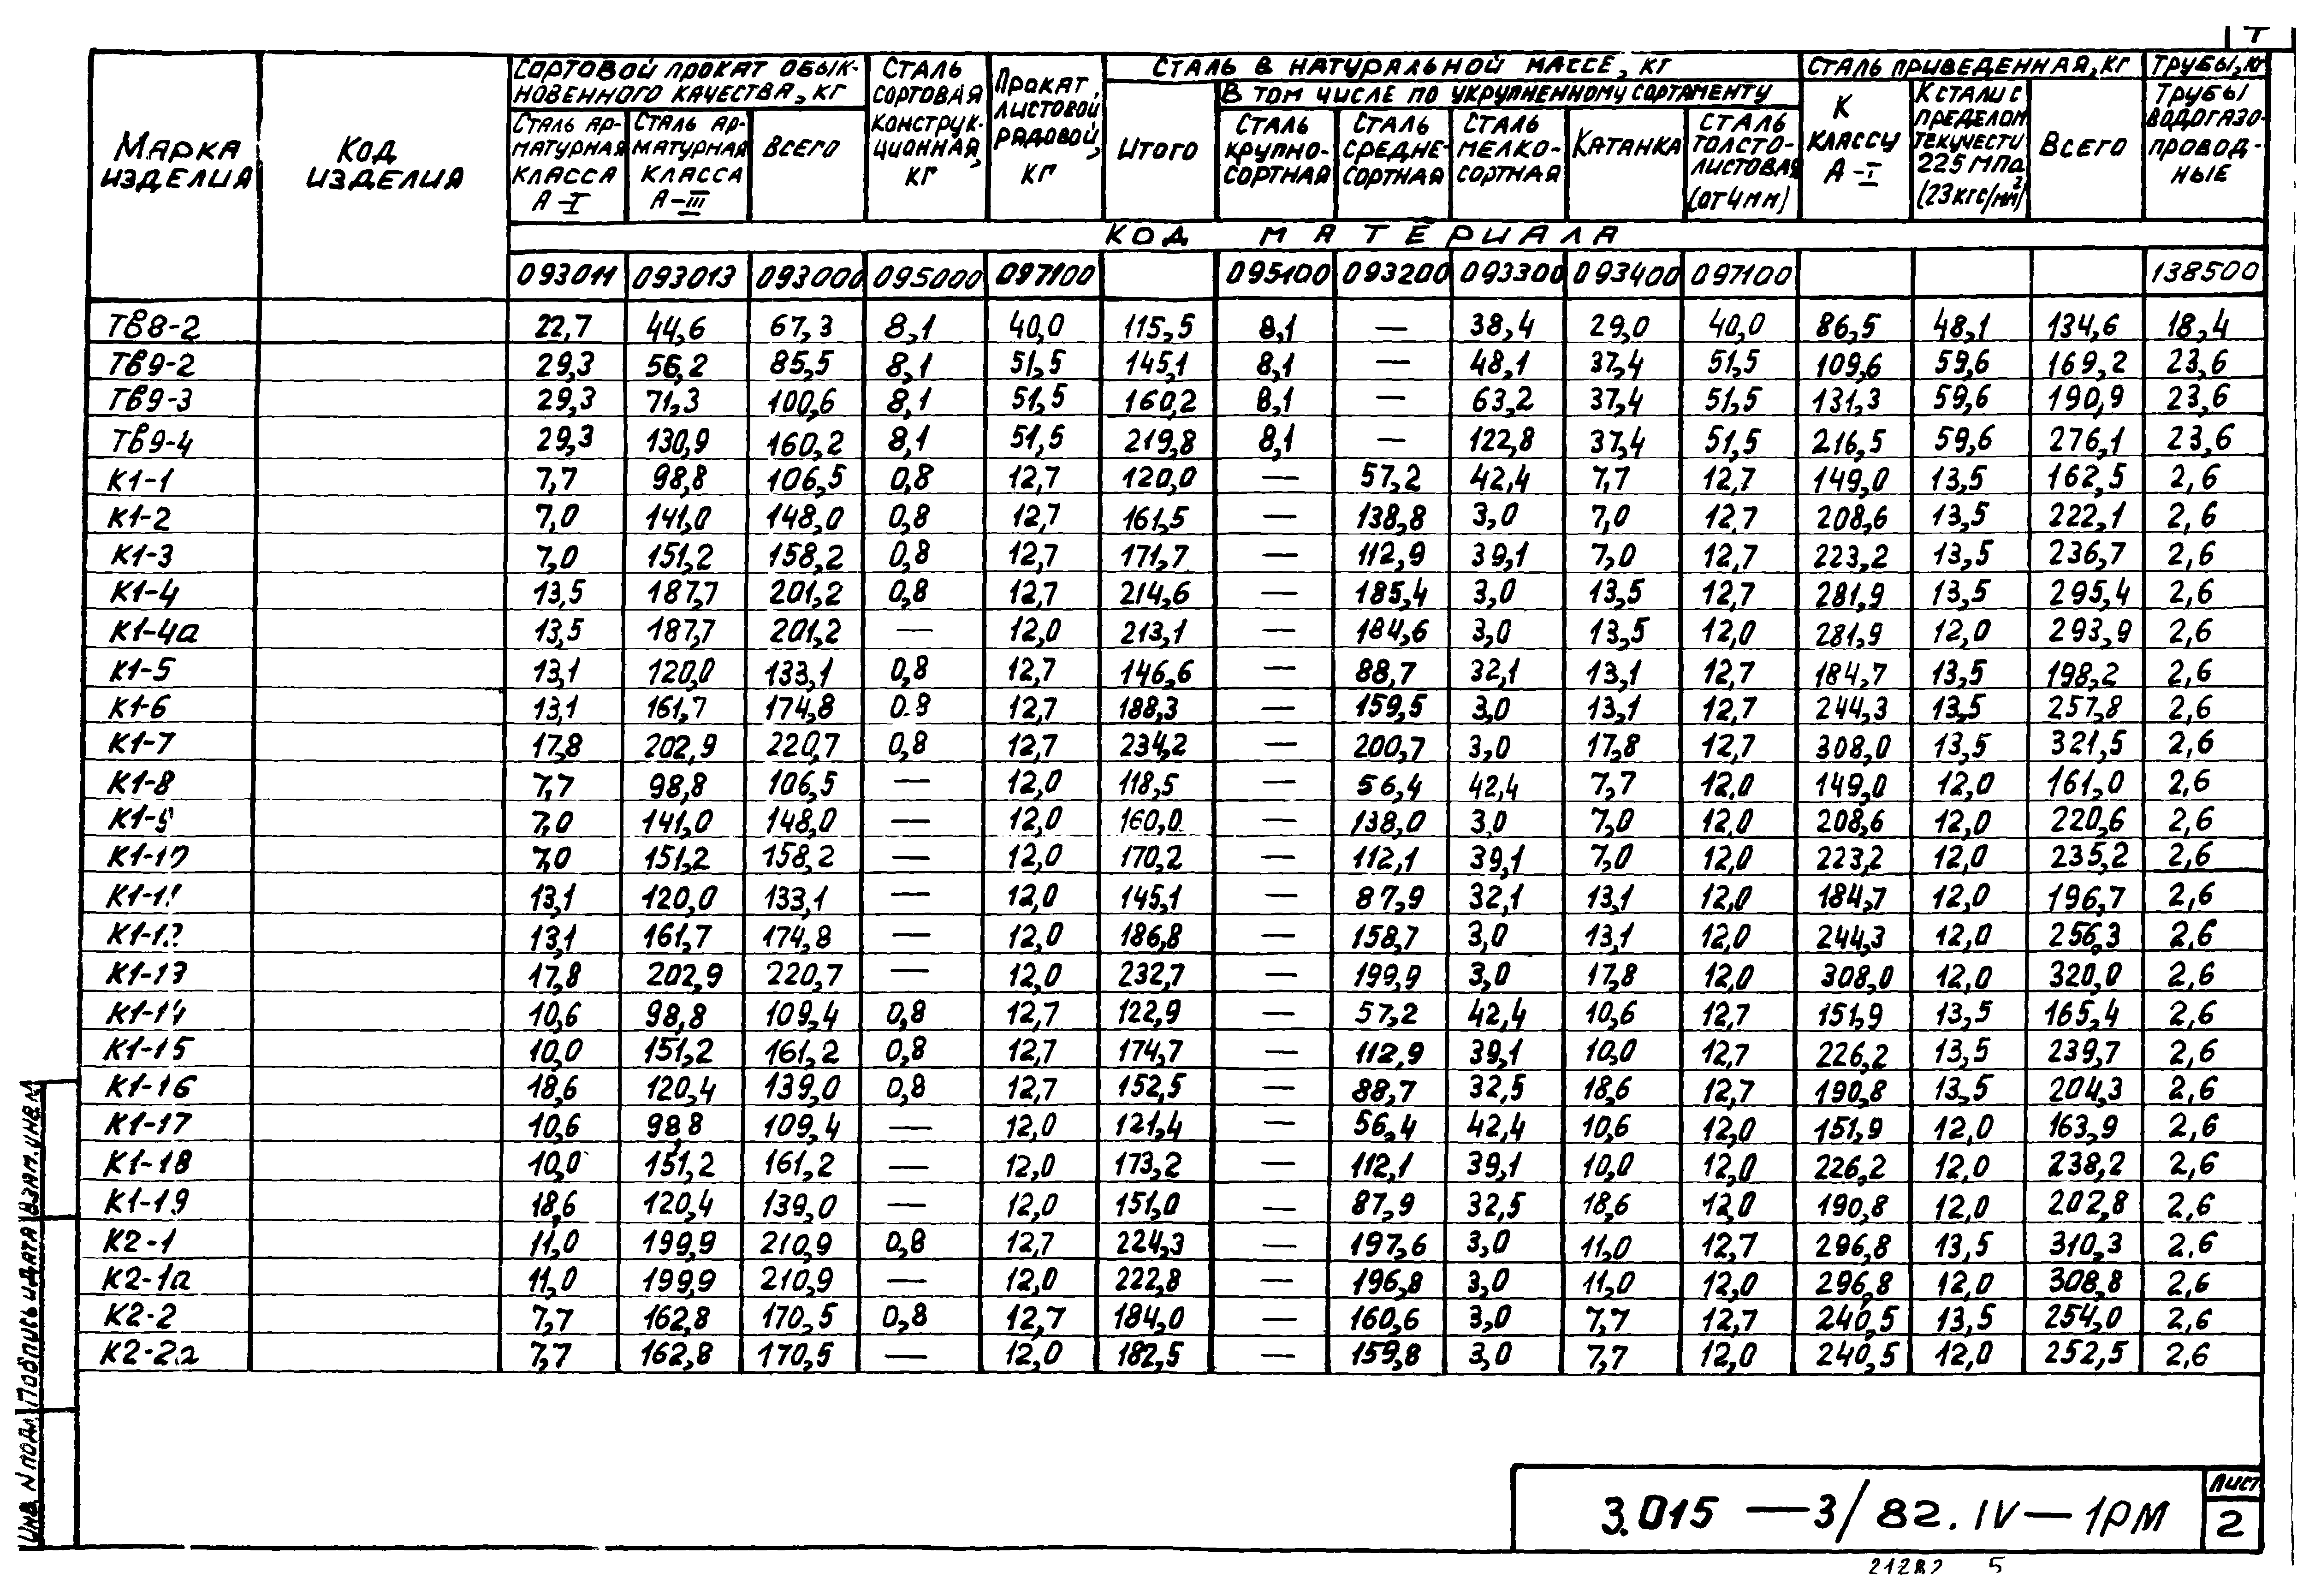 Т
Марка изделия | Код изделия | Сортовой прокат обыкновенного качества, кг | Сталь сортовая конструкционная, кг | Прокат листовой рядовой, кг | Сталь в натуральной массе, кг | Сталь приведенная, кг | Трубы, кг
Сталь арматурная класса А-I | Сталь арматурная класса А-III | Всего | Итого | В том числе по укрупненному сортаменту | К классу А-I | К стали с пределом текучести 225 МПа (23кгс/мм²) | Всего | Трубы водогазопроводные
Сталь крупносортная | Сталь среднесортная | Сталь мелкосортная | Катанка | Сталь толстолистовая (от 4мм)
Код материала
093011 093013 093000 095000 097100 095100 093200 093300 093400 097100 138500
Тв8-2 22,7 44,6 67,3 8,1 40,0 115,5 8,1 — 38,4 29,0 40,0 86,5 48,1 134,6 18,4
Тв9-2 29,3 56,2 85,5 8,1 51,5 145,1 8,1 — 48,1 37,4 51,5 109,6 59,6 169,2 23,6
Тв9-3 29,3 71,3 100,6 8,1 51,5 160,2 8,1 — 63,2 37,4 51,5 131,3 59,6 190,9 23,6
Тв9-4 29,3 130,9 160,2 8,1 51,5 219,8 8,1 — 122,8 37,4 51,5 216,5 59,6 276,1 23,6
К1-1 7,7 98,8 106,5 0,8 12,7 120,0 — 57,2 42,4 7,7 12,7 149,0 13,5 162,5 2,6
К1-2 7,0 141,0 148,0 0,8 12,7 161,5 — 138,8 3,0 7,0 12,7 208,6 13,5 222,1 2,6
К1-3 7,0 151,2 158,2 0,8 12,7 171,7 — 112,9 39,1 7,0 12,7 223,2 13,5 236,7 2,6
К1-4 13,5 187,7 201,2 0,8 12,7 214,6 — 185,4 3,0 13,5 12,7 281,9 13,5 295,4 2,6
К1-4а 13,5 187,7 201,2 — 12,0 213,1 — 184,6 3,0 13,5 12,0 281,9 12,0 293,9 2,6
К1-5 13,1 120,0 133,1 0,8 12,7 146,6 — 88,7 32,1 13,1 12,7 184,7 13,5 198,2 2,6
К1-6 13,1 161,7 174,8 0.8 12,7 188,3 — 159,5 3,0 13,1 12,7 244,3 13,5 257,8 2,6
К1-7 17,8 202,9 220,7 0,8 12,7 234,2 — 200,7 3,0 17,8 12,7 308,0 13,5 321,5 2,6
К1-8 7,7 98,8 106,5 — 12,0 118,5 — 56,4 42,4 7,7 12,0 149,0 12,0 161,0 2,6
К1-9 7,0 141,0 148,0 — 12,0 160,0 — 138,0 3,0 7,0 12,0 208,6 12,0 220,6 2,6
К1-10 7,0 151,2 158,2 — 12,0 170,2 — 112,1 39,1 7,0 12,0 223,2 12,0 235,2 2,6
К1-11 13,1 120,0 133,1 — 12,0 145,1 — 87,9 32,1 13,1 12,0 184,7 12,0 196,7 2,6
К1-12 13,1 161,7 174,8 — 12,0 186,8 — 158,7 3,0 13,1 12,0 244,3 12,0 256,3 2,6
К1-13 17,8 202,9 220,7 — 12,0 232,7 — 199,9 3,0 17,8 12,0 308,0 12,0 320,0 2,6
К1-14 10,6 98,8 109,4 0,8 12,7 122,9 — 57,2 42,4 10,6 12,7 151,9 13,5 165,4 2,6
К1-15 10,0 151,2 161,2 0,8 12,7 174,7 — 112,9 39,1 10,0 12,7 226,2 13,5 239,7 2,6
К1-16 18,6 120,4 139,0 0,8 12,7 152,5 — 88,7 32,5 18,6 12,7 190,8 13,5 204,3 2,6
К1-17 10,6 98,8 109,4 — 12,0 121,4 — 56,4 42,4 10,6 12,0 151,9 12,0 163,9 2,6
К1-18 10,0 151,2 161,2 — 12,0 173,2 — 112,1 39,1 10,0 12,0 226,2 12,0 238,2 2,6
К1-19 18,6 120,4 139,0 — 12,0 151,0 — 87,9 32,5 18,6 12,0 190,8 12,0 202,8 2,6
К2-1 11,0 199,9 210,9 0,8 12,7 224,3 — 197,6 3,0 11,0 12,7 296,8 13,5 310,3 2,6
К2-1а 11,0 199,9 210,9 — 12,0 222,8 — 196,8 3,0 11,0 12,0 296,8 12,0 308,8 2,6
К2-2 7,7 162,8 170,5 0,8 12,7 184,0 — 160,6 3,0 7,7 12,7 240,5 13,5 254,0 2,6
К2-2а 7,7 162,8 170,5 — 12,0 182,5 — 159,8 3,0 7,7 12,0 240,5 12,0 252,5 2,6
Инв. N подл. Подпись и дата Взам. инв. N
3.015 — 3/82. IV — 1РМ
Лист
2
21282 5